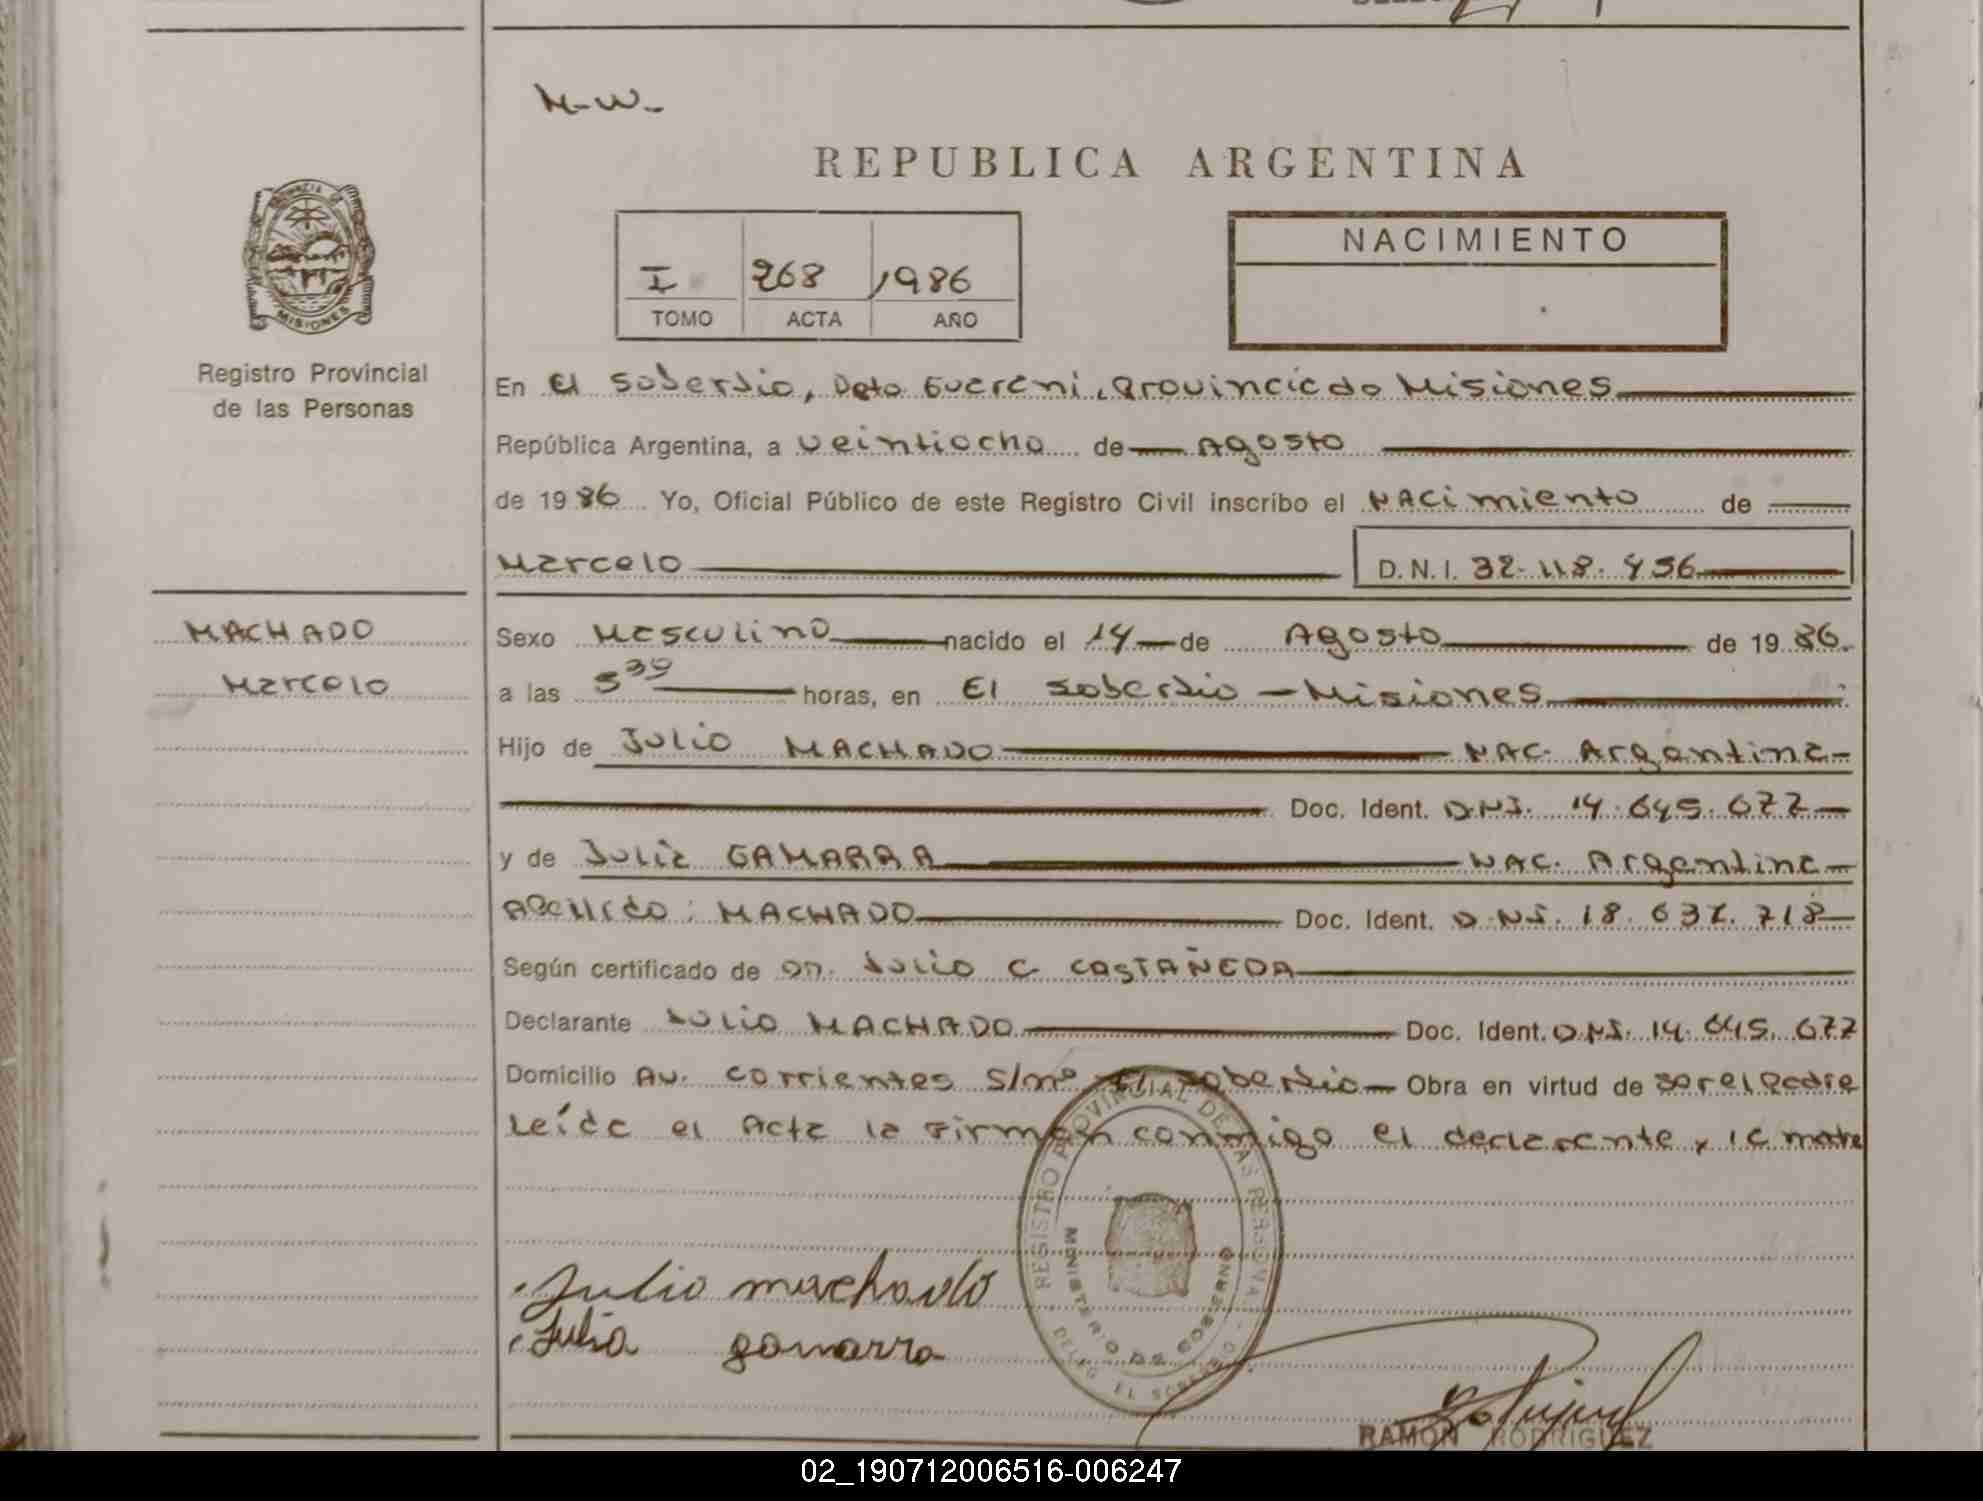 M-W-
REPUBLICA ARGENTINA
I 268 1986
TOMO ACTA AÑO
NACIMIENTO
PROVINCIA DE
MISIONES
Registro Provincial
de las Personas
En El Soberbio, Dpto Guarani, Provincia de Misiones
República Argentina, a veintiocho de Agosto
de 1986 Yo, Oficial Público de este Registro Civil inscribo el NACimiento de
Marcelo D.N.I. 32.118.456
MACHADO
Marcelo
Sexo Masculino nacido el 14 de Agosto de 1986.
a las 5 30 horas, en El Soberbio - Misiones
Hijo de Julio MACHADO NAC. Argentina
Doc. Ident. D.N.I. 14.645.677
y de Julia GAMARRA NAC. Argentina
Apellido: MACHADO Doc. Ident. D.N.I. 18.637.718
Según certificado de Dr. Julio C. CASTAÑEDA
Declarante Julio MACHADO Doc. Ident. D.N.I. 14.645.677
Domicilio Av. Corrientes S/nº El Soberbio Obra en virtud de ser el padre
Leída el Acta la firman conmigo el declarante y la madre
REGISTRO PROVINCIAL DE LAS PERSONAS
MINISTERIO DE GOBIERNO
DELEG. EL SOBERBIO
Julio machado
Julia gamarra
RAMON RODRIGUEZ
02_190712006516-006247